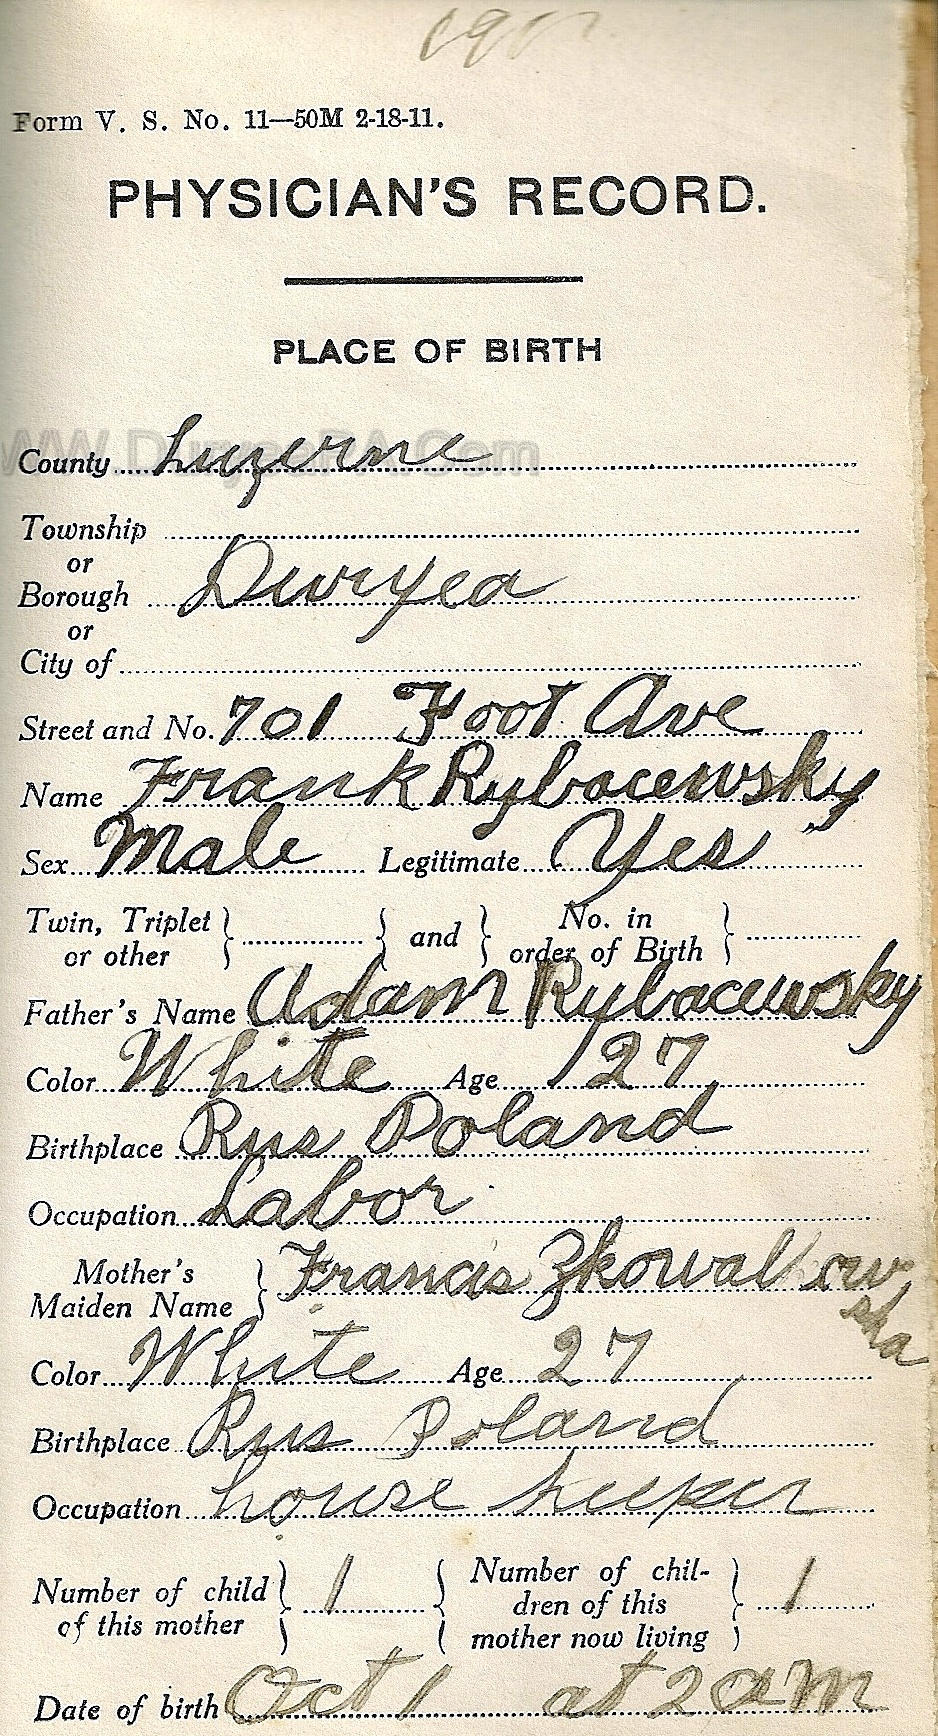 Form V. S. No. 11—50M 2-18-11.
PHYSICIAN'S RECORD.
PLACE OF BIRTH
WWW.DuryeaPA.Com
County Luzerne
Township
or
Borough Duryea
or
City of
Street and No. 701 Foot Ave
Name Frank Rybacewsky
Sex Male Legitimate Yes
Twin, Triplet or other } { and } No. in order of Birth }
Father's Name Adam Rybacewsky
Color White Age 27
Birthplace Rus Poland
Occupation Labor
Mother's Maiden Name } Francis
Color White Age 27
Birthplace Rus Poland
Occupation house
Number of child of this mother } 1 { Number of chil-
dren of this
mother now living } 1
Date of birth Oct 1 at 2 am